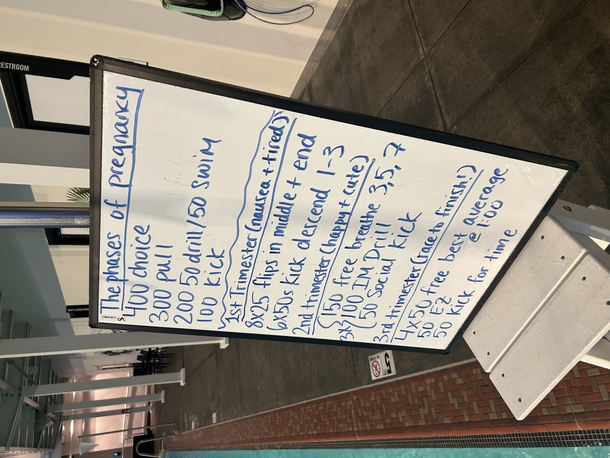 The phases of pregnancy
400 choice
300 pull
200 50 drill/50 swim
100 kick
1st Trimester (nausea + tired)
8x25 flips in middle + end
6x50s kick descend 1-3
2nd trimester (happy + cute)
3x { 150 free breathe 3,5,7
100 IM Drill
50 social kick
3rd trimester (race to finish!)
4x50 free best average
50 EZ @ 1:00
50 kick for time
RESTROOM